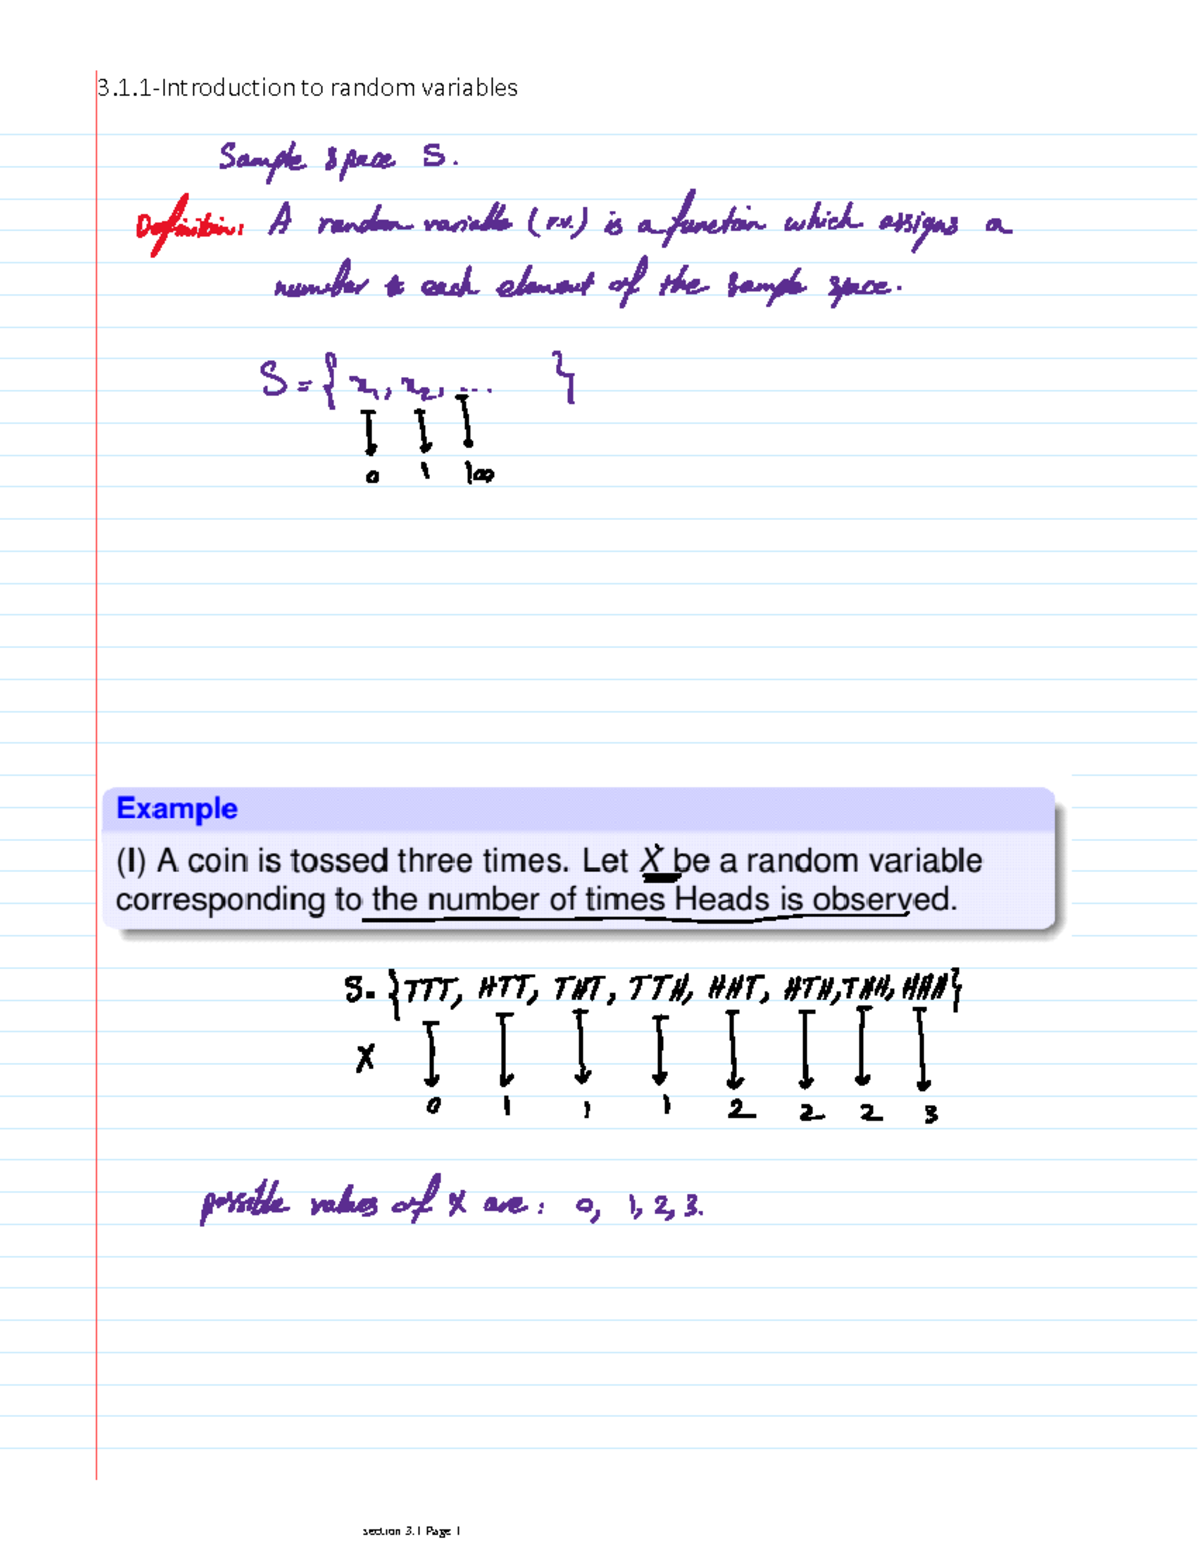 3.1.1-Introduction to random variables
Sample space S.
Definition: A random variable (r.v.) is a function which assigns a
number to each element of the sample space.
S = { x₁, x₂, ... }
0 1 100
Example
(I) A coin is tossed three times. Let X be a random variable
corresponding to the number of times Heads is observed.
S = {TTT, HTT, THT, TTH, HHT, HTH, THH, HHH}
X
0 1 1 1 2 2 2 3
possible values of X are: 0, 1, 2, 3.
section 3.1 Page 1